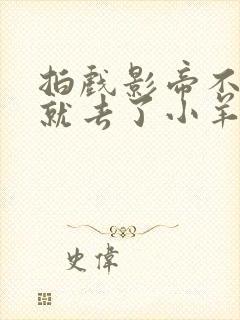 拍戏影帝不
就去了小羊
史偉